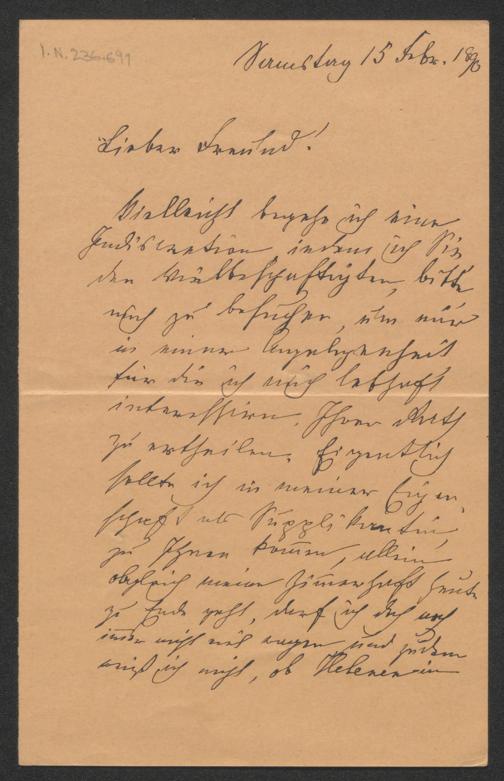 I.N. 236.691
Samstag 15 Febr. 1890
Lieber Freund!
Vielleicht begehe ich eine
Indiscretion indem ich Sie
den Vielbeschäftigten, bitte
mich zu besuchen, um mir
in einer Angelegenheit
für die ich mich lebhaft
interessire, Ihren Rath
zu ertheilen. Eigentlich
sollte ich in meiner Eigen
schaft als Supplikantin,
zu Ihnen kommen, allein
obgleich meine Zimmerhaft heute
zu Ende geht, darf ich doch noch
immer nicht viel wagen und zudem
weiß ich nicht, ob